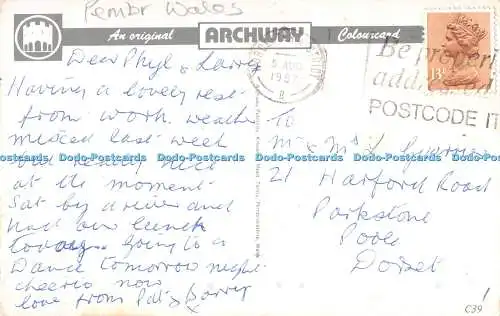 Pembr Wales
An original ARCHWAY Colourcard
5 AUG
1987
Be properly
addressed
POSTCODE IT
13
Dear Phyl & Larry
Having a lovely rest
from work. weather
mixed last week
but really nice
at the moment.
Sat by a river and
had our lunch
today. Going to a
Dance tomorrow night
cheerio now
love from Pat & Barry
x
To
Mr & Mrs L
21 Harford Road
Parkstone
Poole
Dorset
C39
Dodo-Postcards Dodo-Postcards Dodo-Postcards Dodo-Postcards Dodo-Postcards Dodo-Postcards